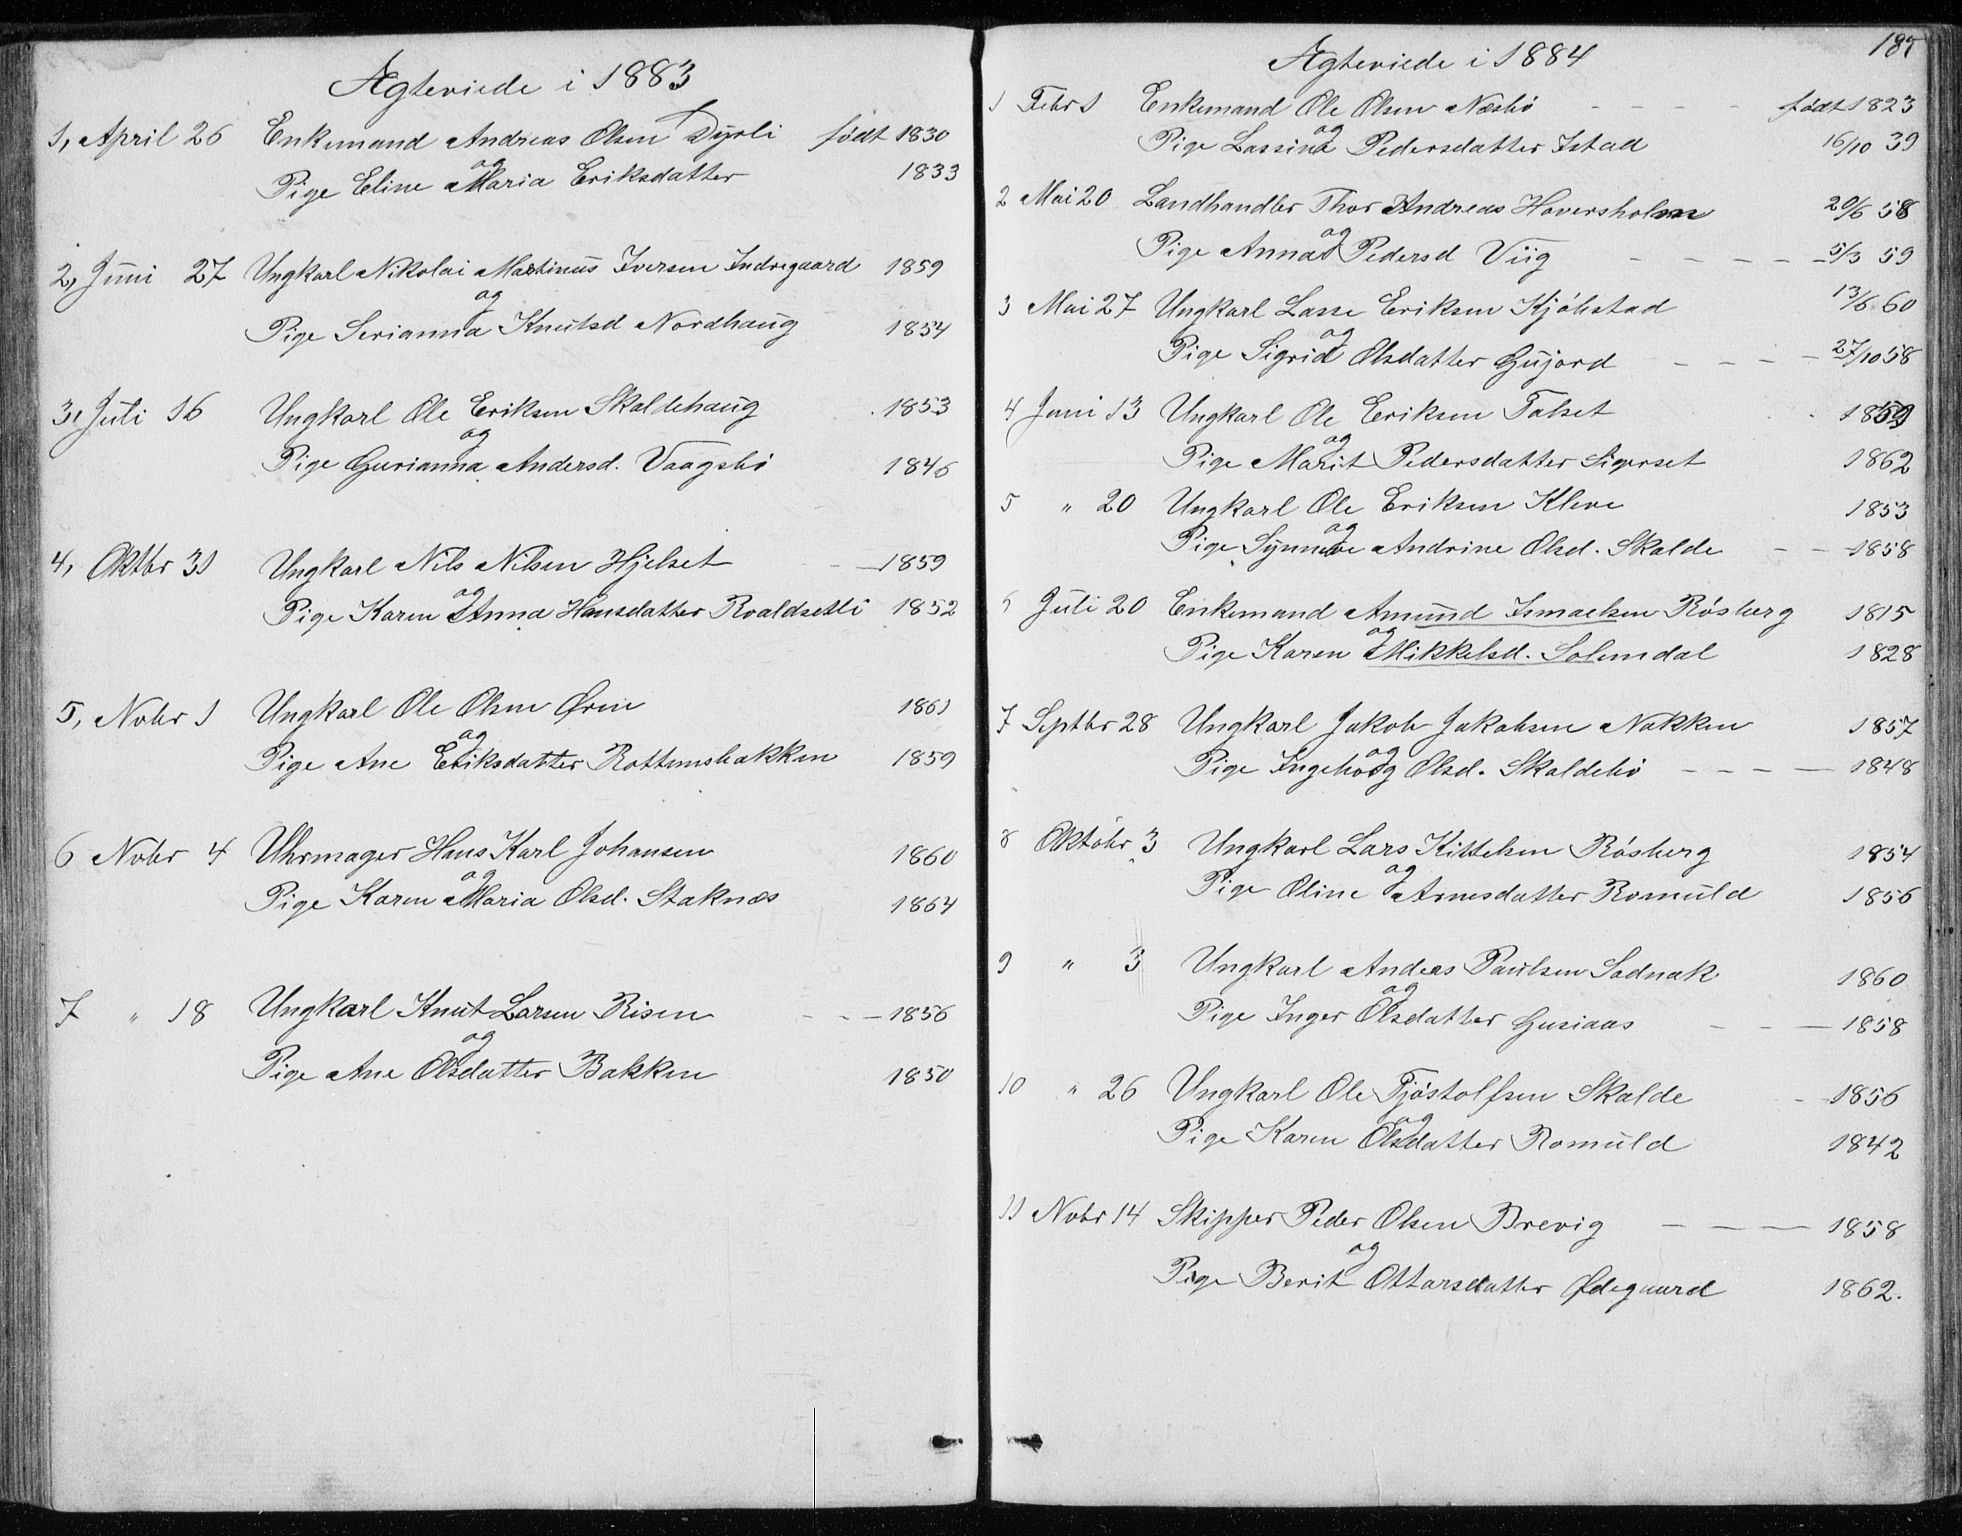 Ægteviede i 1883
1, April 26 Enkemand Andreas Olsen Dyrli født 1830
og
Pige Eline Maria Eriksdatter 1833
2, Juni 27 Ungkarl Nikolai Martinus Iversen Indregaard 1859
og
Pige Serianna Knutsd Nordhaug 1854
3, Juli 16 Ungkarl Ole Eriksen Skaldehaug 1853
og
Pige Gurianna Andersd. Vaagsbö 1846
4, Oktbr 31 Ungkarl Nils Nilsen Hjelset 1859
og
Pige Karen Anna Hansdatter Roaldsetli 1852
5, Nobr 1 Ungkarl Ole Olsen Ørin 1861
og
Pige Ane Eriksdatter Rottemsbakken 1859
6 Nobr 4 Uhrmager Hans Karl Johansen 1860
og
Pige Karen Maria Olsd. Staknæs 1864
7 " 18 Ungkarl Knut Larsen Risen 1856
og
Pige Ane Olsdatter Bakken 1850
187
Ægteviede i 1884
1 Febr 1 Enkemand Ole Olsen Næsbö født 1823
og
Pige Lassina Pedersdatter Istad 16/10 39
2 Mai 20 Landhandler Thor Andreas Haversholm 20/6 58
og
Pige Anna Pedersd Viig 5/3 59
3 Mai 27 Ungkarl Lasse Eriksen Kjöbstad 13/6 60
og
Pige Sigrid Olsdatter Gujord 27/10 58
4 Juni 13 Ungkarl Ole Eriksen Talset 1859
og
Pige Marit Pedersdatter Sigerset 1862
5 " 20 Ungkarl Ole Eriksen Kleve 1853
og
Pige Synnöve Andrine Olsd. Skalde 1858
6 Juli 20 Enkemand Amund Ismaelsen Rösberg 1815
og
Pige Karen Mikkelsd. Solemdal 1828
7 Septbr 28 Ungkarl Jakob Jakobsen Nakken 1857
og
Pige Ingeborg Olsd. Skaldebö 1848
8 Oktobr 3 Ungkarl Lars Kittelsen Rösberg 1854
og
Pige Oline Arnesdatter Romuld 1856
9 " 3 Ungkarl Anders Paulsen Sadnak 1860
og
Pige Inger Olsdatter Gusiaas 1858
10 " 26 Ungkarl Ole Tjöstolfsen Skalde 1856
og
Pige Karen Olsdatter Romuld 1842
11 Nobr 14 Skipper Peder Olsen Brevig 1858
og
Pige Berit Ottarsdatter Ødegaard 1862.